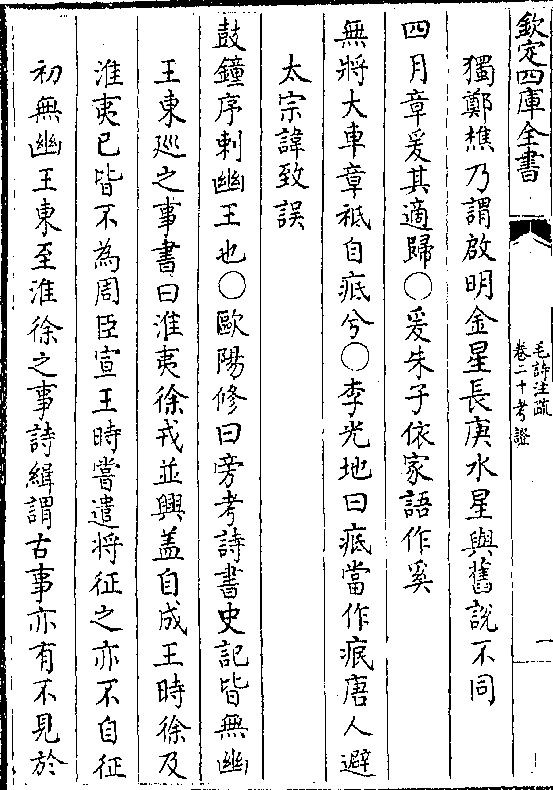 欽定四庫全書
毛詩注疏
卷二十考證
一
獨鄭樵乃謂啟明金星長庚水星與舊說不同
四月章爰其適歸○爰朱子依家語作奚
無將大車章祗自疧兮○李光地曰疧當作痕唐人避
太宗諱致誤
鼓鐘序刺幽王也○歐陽修曰旁考詩書史記皆無幽
王東廵之事書曰淮夷徐戎並興盖自成王時徐及
淮夷已皆不為周臣宣王時嘗遣将征之亦不自征
初無幽王東至淮徐之事詩緝謂古事亦有不見於